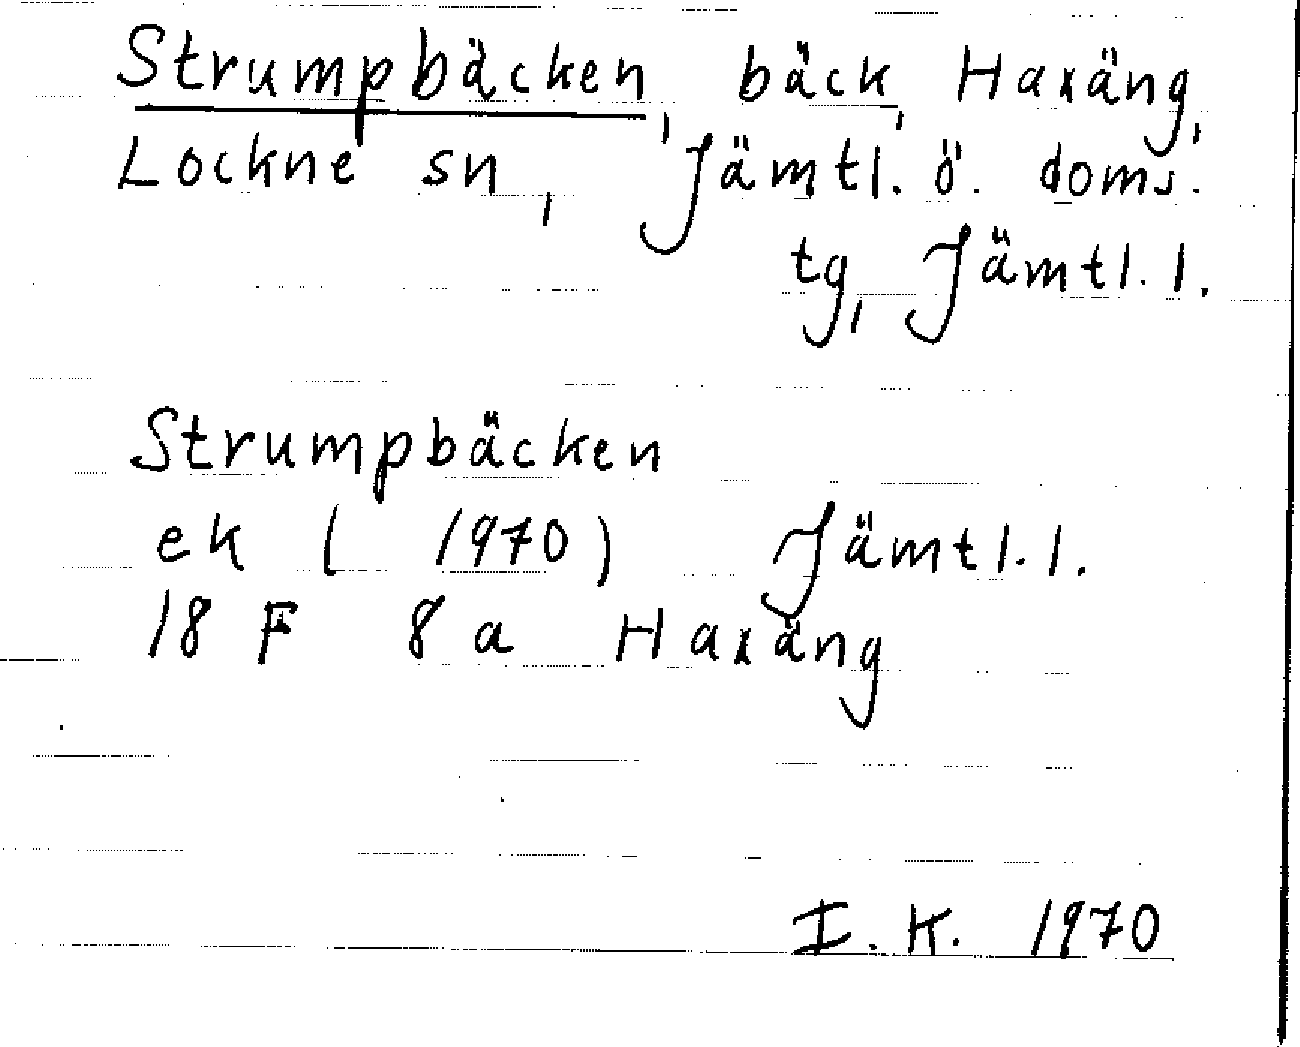 Strumpbäcken, bäck, Haxäng,
Lockne sn, Jämtl. ö. doms.
tg, Jämtl. l.
Strumpbäcken
ek ( 1970) Jämtl. l.
18 F 8 a Haxäng
I. K. 1970